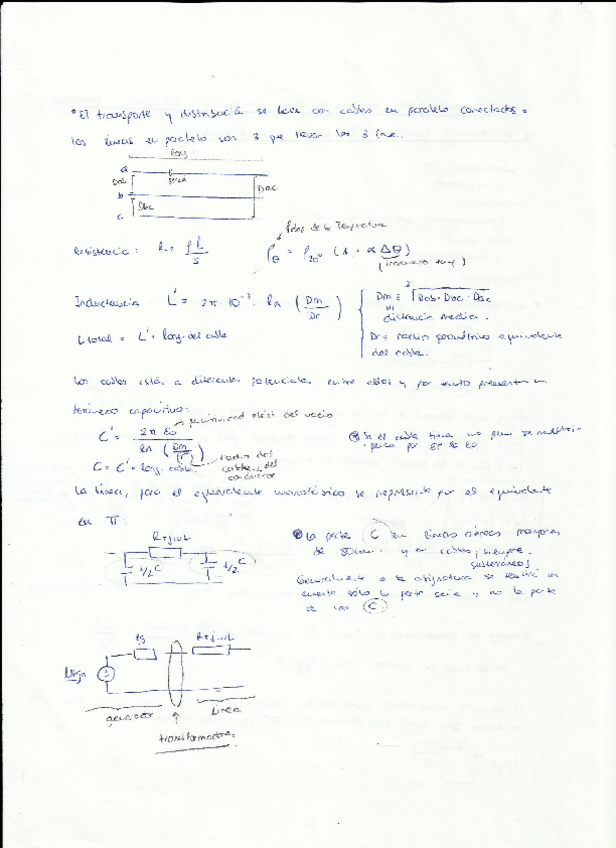 • El transporte y distribución se hace con cables en paralelo conectados.
Las líneas en paralelo son 3 que llevan las 3 fases.
Long
a
Dab
b
Dbc
c
Dac
Resistencia: R = ρL/S
ρθ = ρ20º (1 + α Δθ)
Inductancia L' = 2π · 10⁻⁷ · Ln (Dm/Dr)
Dm = ³√Dab · Dbc · Dac
distancia media.
Dr = radio geométrico equivalente
del cable.
L total = L' · Long. del cable
Los cables están a diferentes potenciales entre ellos y por tanto presentan un
término capacitivo:
C' = 2π ε0 / Ln (Dm/r)
permitividad eléct. del vacío
radio del
cable, del
conductor
C = C' · long. cable.
La línea, para el equivalente monofásico se representa por el equivalente
en π:
R+jωL
1/2 C
1/2 C
La parte C en líneas aéreas mayores
de 80km. y en cables, siempre.
subterráneos
Generalmente en la asignatura se tendrá en
cuenta sólo la parte serie y no la parte
de los C
R+jωL
generador
Línea
transformadores